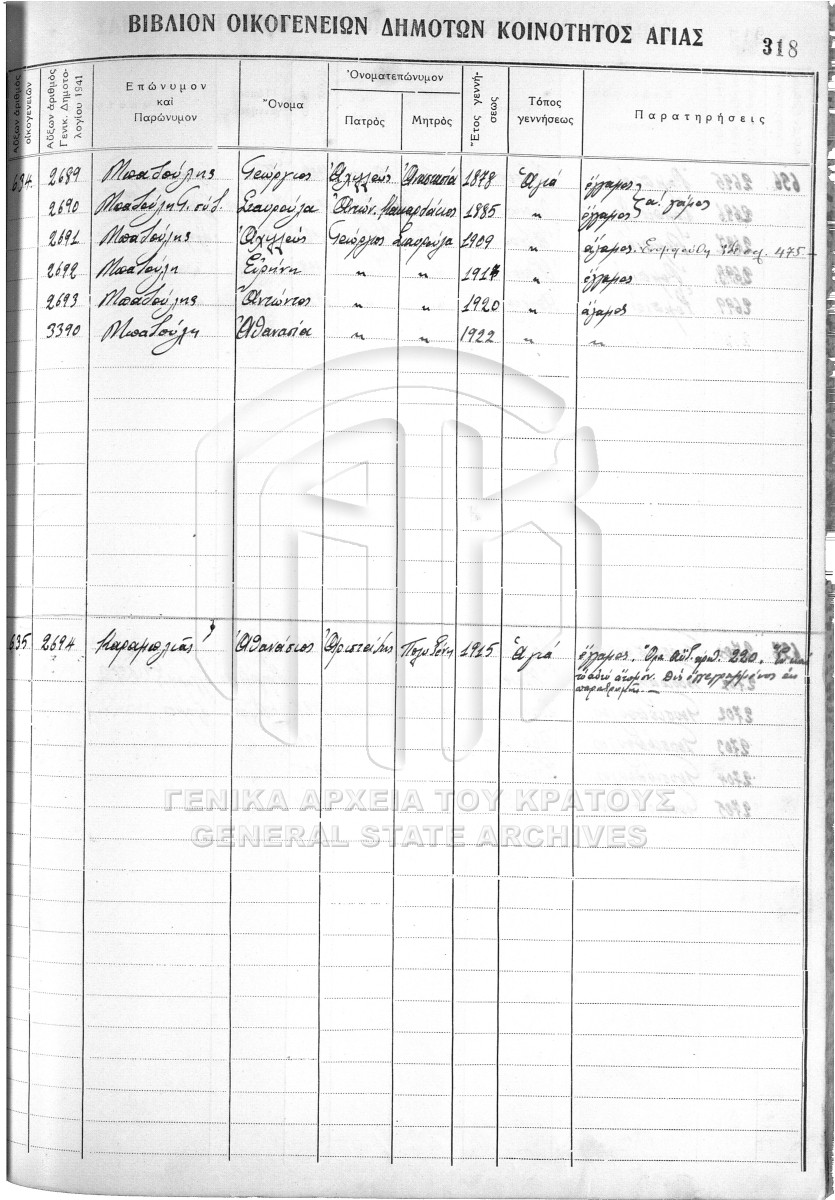 ΒΙΒΛΙΟΝ ΟΙΚΟΓΕΝΕΙΩΝ ΔΗΜΟΤΩΝ ΚΟΙΝΟΤΗΤΟΣ ΑΓΙΑΣ
318
Αὔξων ἀριθμὸς οἰκογενειῶν
Αὔξων ἀριθμὸς Γενικ. Δημοτολογίου 1941
Ἐπώνυμον καὶ Παρώνυμον
Ὄνομα
Ὀνοματεπώνυμον
Πατρὸς
Μητρὸς
Ἔτος γεννήσεως
Τόπος γεννήσεως
Παρατηρήσεις
634 2689 Μπατούλης Γεώργιος Ἀχιλλεύς Ἀναστασία 1878 Ἁγιά ἔγγαμος
2690 Μπατούλη Γ. συζ. Σταυρούλα Ἀντών. 1885 〃 ἔγγαμος α! γάμος
2691 Μπατούλης Ἀχιλλεύς Γεώργιος Σταυρούλα 1909 〃 ἄγαμος 475
2692 Μπατούλη Εἰρήνη 〃 〃 1917 〃 ἔγγαμος
2693 Μπατούλης Ἀντώνιος 〃 〃 1920 〃 ἄγαμος
3390 Μπατούλη Ἀθανασία 〃 〃 1922 〃 〃
635 2694 Καραμπλιᾶς Ἀθανάσιος Ἀριστείδης Πολυξένη 1915 Ἁγιά ἔγγαμος. 220.
τὸ αὐτὸ ἄτομον. Δὶς ἐγγεγραμμένος ἐκ
παραδρομῆς.
ΓΕΝΙΚΑ ΑΡΧΕΙΑ ΤΟΥ ΚΡΑΤΟΥΣ
GENERAL STATE ARCHIVES